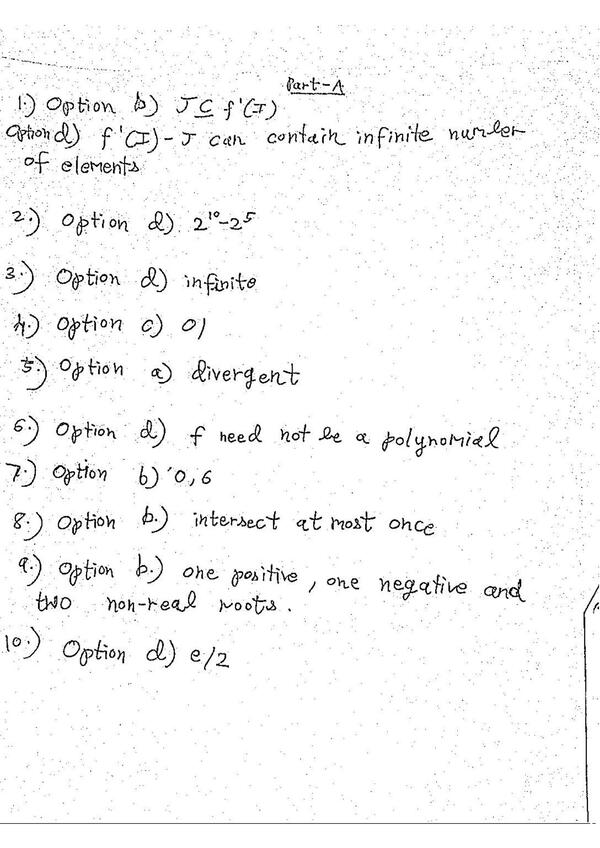 Part-A
1.) Option b) J ⊆ f'(I)
Option d) f'(I) - J can contain infinite number
of elements
2.) Option d) 2¹⁰-2⁵
3.) Option d) infinite
4.) Option c) 01
5.) Option a) divergent
6.) Option d) f need not be a polynomial
7.) Option b) 0,6
8.) Option b.) intersect at most once
9.) Option b.) one positive, one negative and
two non-real roots.
10.) Option d) e/2